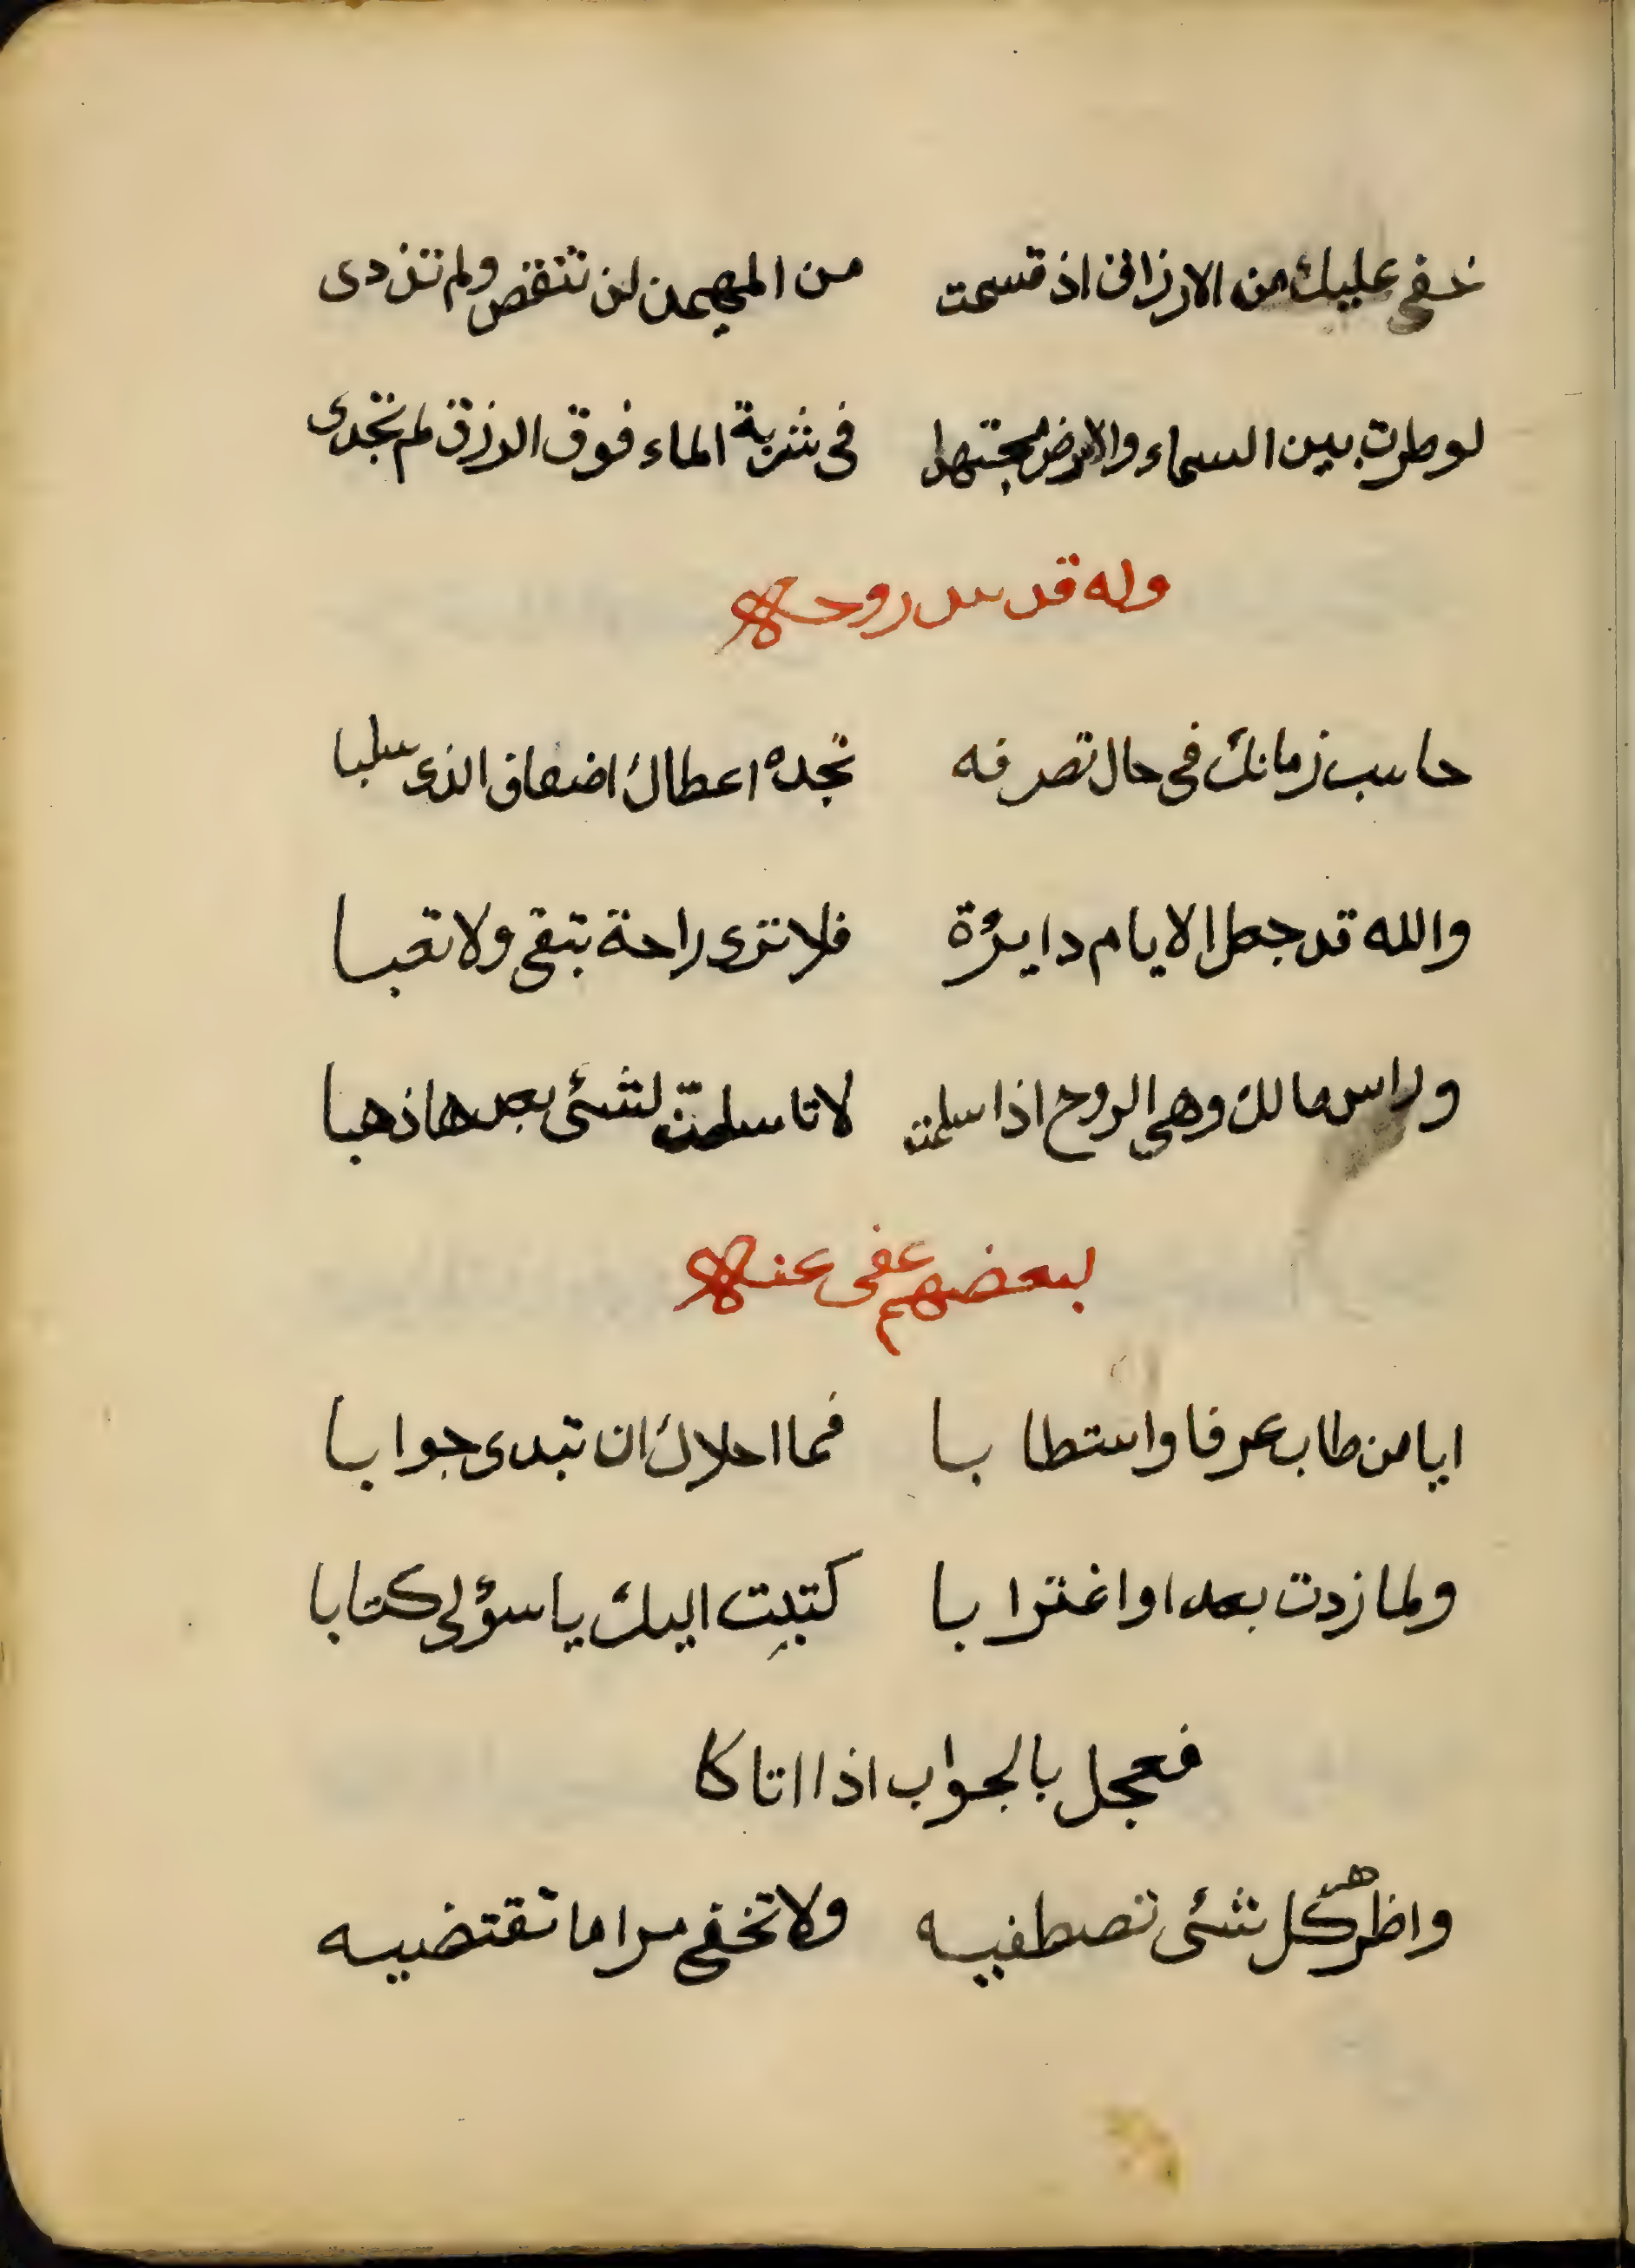 خفى عليك من الارزاق اذ قسمت من المهيمن لن تنقص ولم تزدى
لو طرت بين السماء والارض مجتهدا فى شربة الماء فوق الرزق لم تجدى
وله قدس روحه
حاسب زمانك فى حال تصرفه تجده اعطاك اضعاف الذى سلبا
والله قد جعل الايام دايرة فلا ترى راحة تبقى ولا تعبا
وراس مالك وهى الروح اذا سلمت لا تاسفن لشئ بعدها ذهبا
لبعضهم عفى عنه
ايا من طاب عرفا واستطابا فما احلاك ان تبدى جوابا
ولما زدت بعدا واغترابا كتبت اليك يا سؤلى كتابا
فعجل بالجواب اذا اتاكا
واظهر كل شئ تصطفيه ولا تخفى مراما تقتضيه